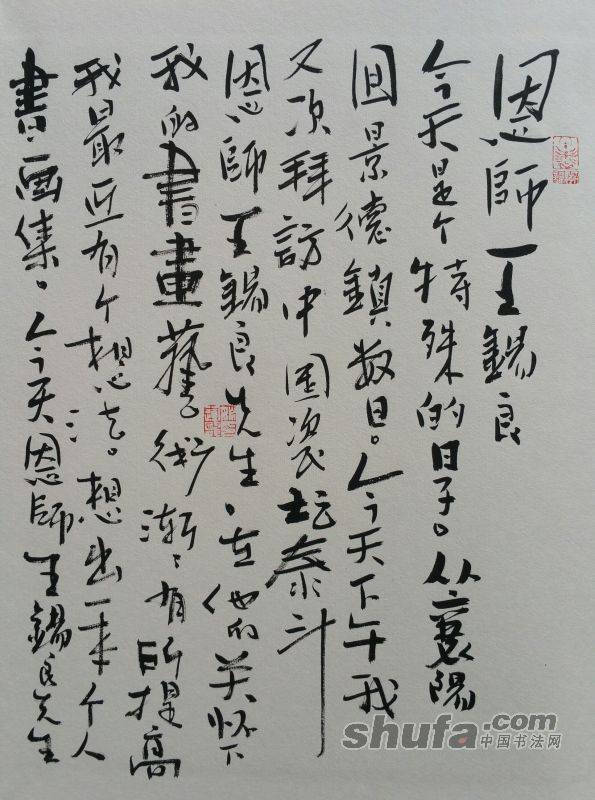 恩師王錫良
今天是个特殊的日子。从襄陽
回景德鎮数日。今天下午我
又次拜訪中国瓷坛泰斗
恩師王錫良先生。在他的关怀下
我的書畫藝術漸〻有所提高
我最近有个想法。想出一本个人
書画集。今天恩師王錫良先生
shufa.com
中国书法网